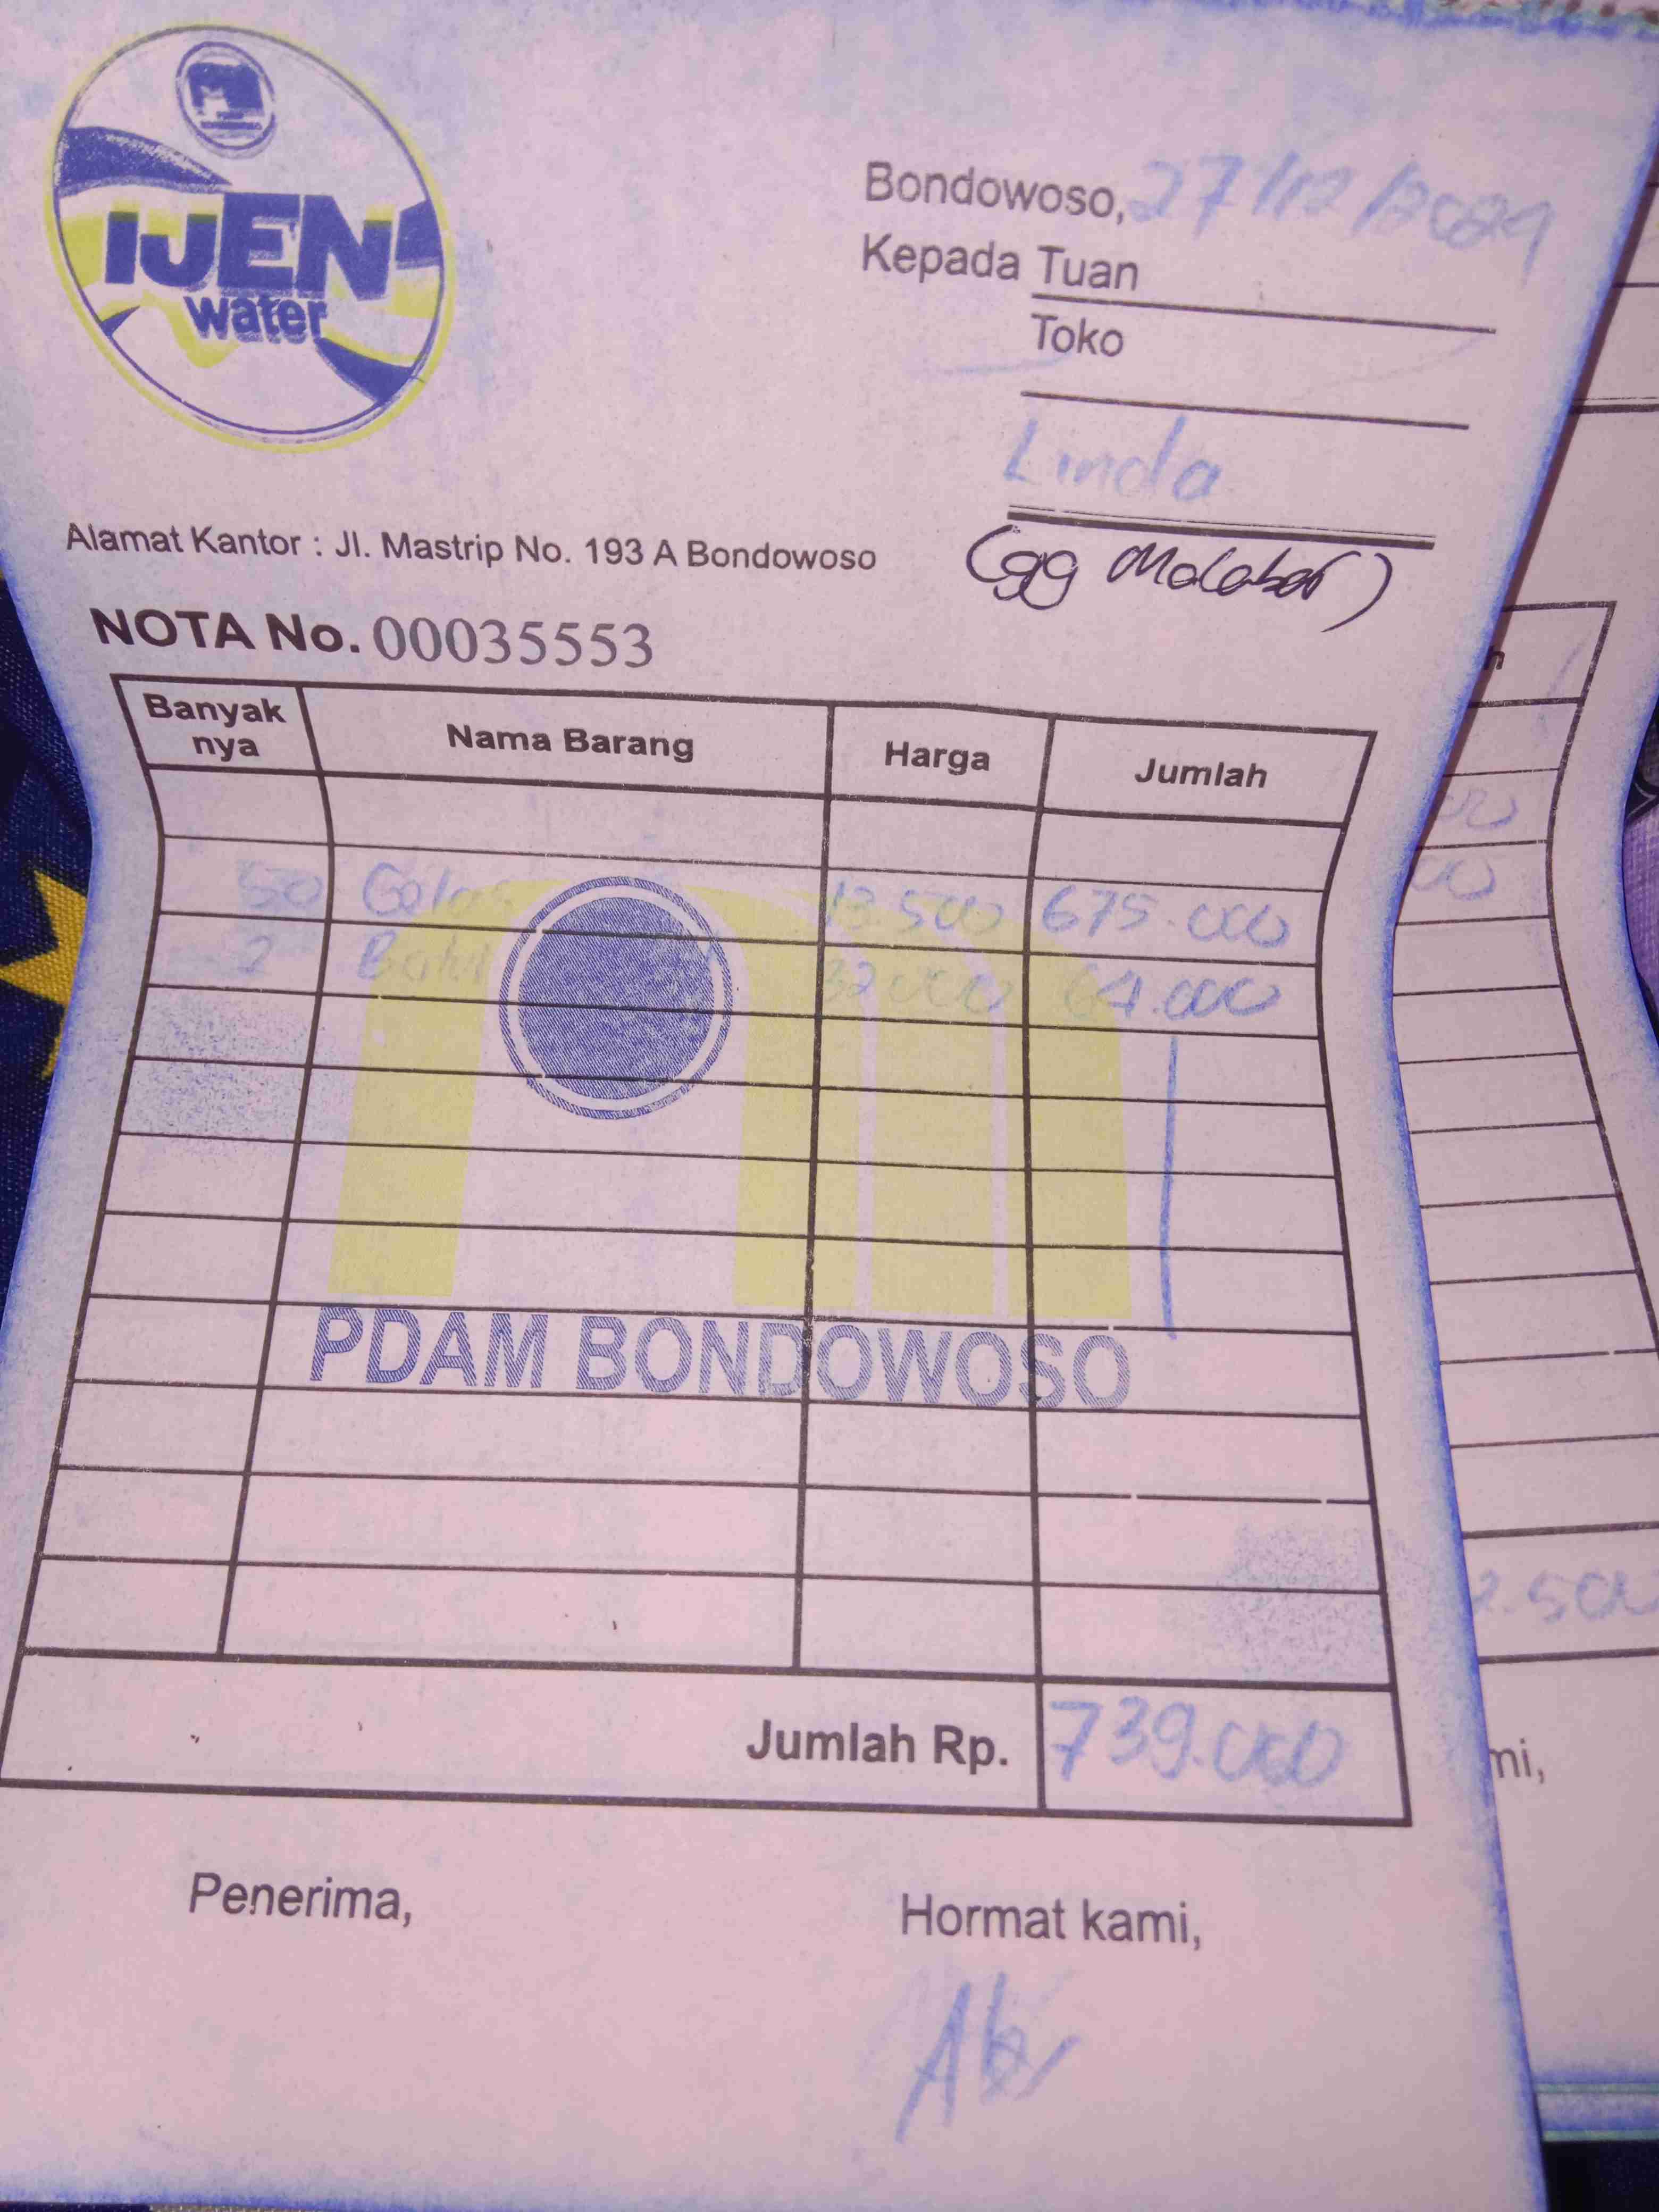 IJEN
water
Bondowoso, 27/12/2024
Kepada Tuan
Toko
Linda
(gg Malabar)
Alamat Kantor : Jl. Mastrip No. 193 A Bondowoso
NOTA No. 00035553
Banyak nya Nama Barang Harga Jumlah
50 Gelas 13.500 675.000
2 Botol 32.000 64.000
PDAM BONDOWOSO
Jumlah Rp. 739.000
Penerima, Hormat kami,
00
00
2.500
mi,